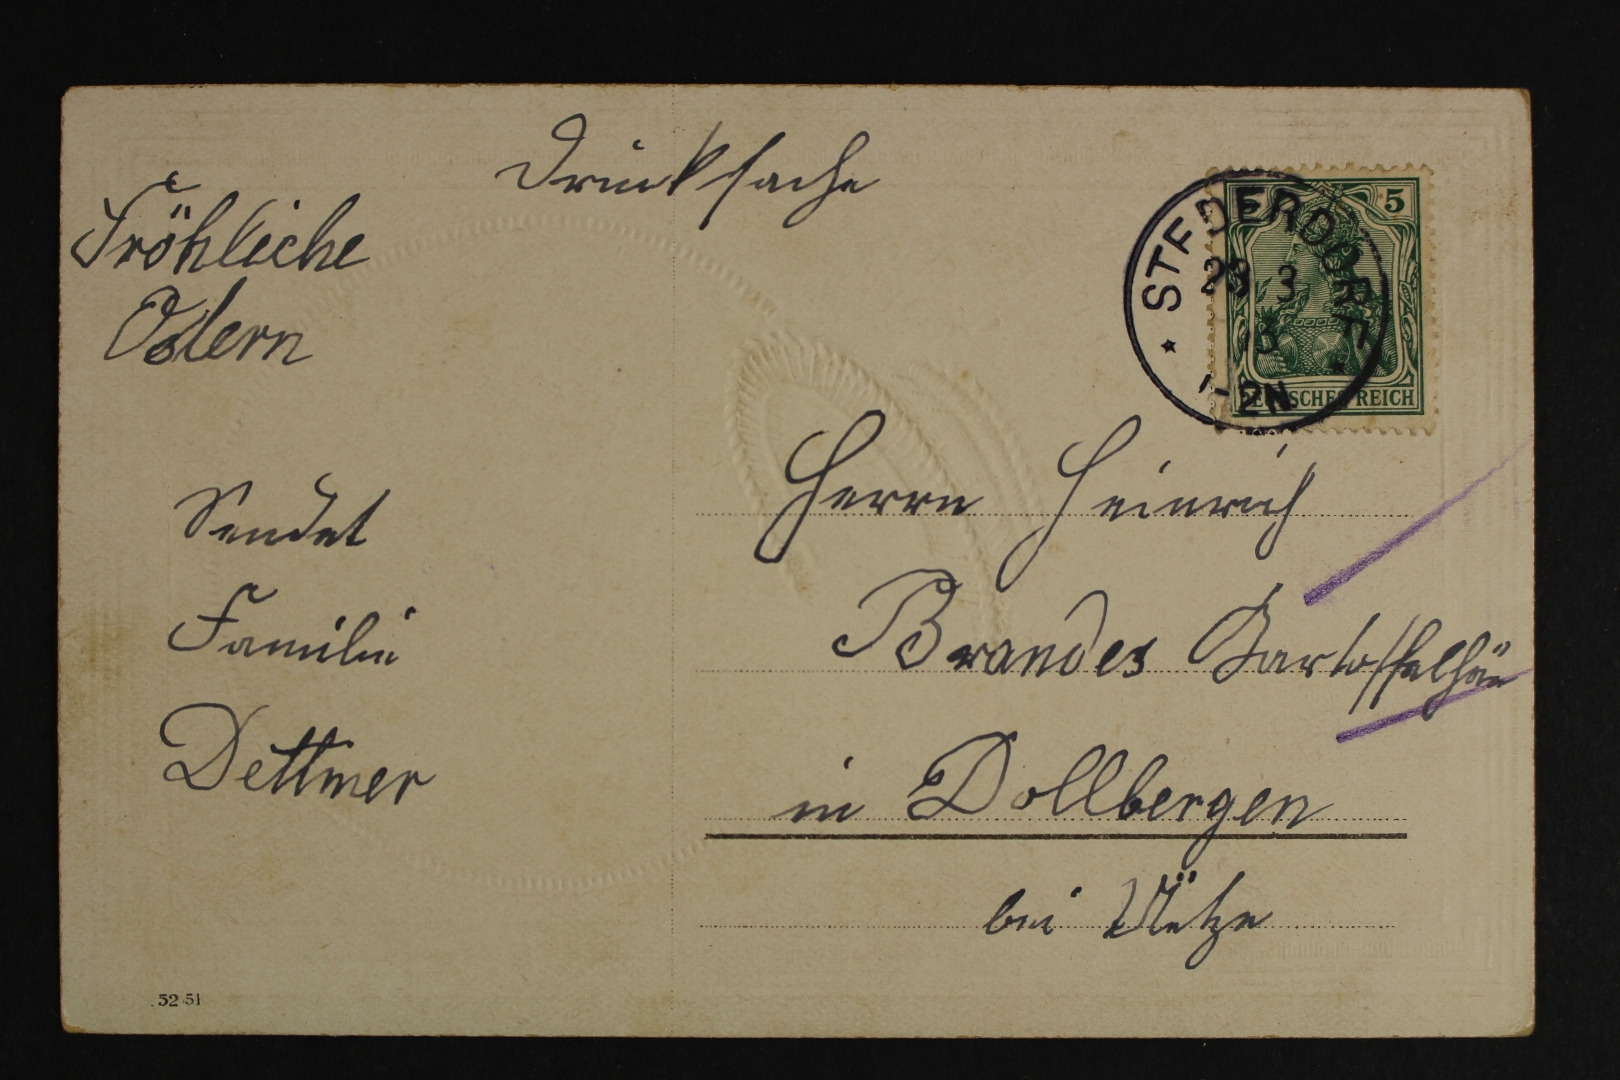 Drucksache
Fröhliche
Ostern
Sendet
Familie
Dettmer
5
STEDERDORF
29 3
13
1-2N
DEUTSCHES REICH
Herrn Heinrich
Brandes Kartoffelhän
in Dollbergen
bei Ütze
52 51